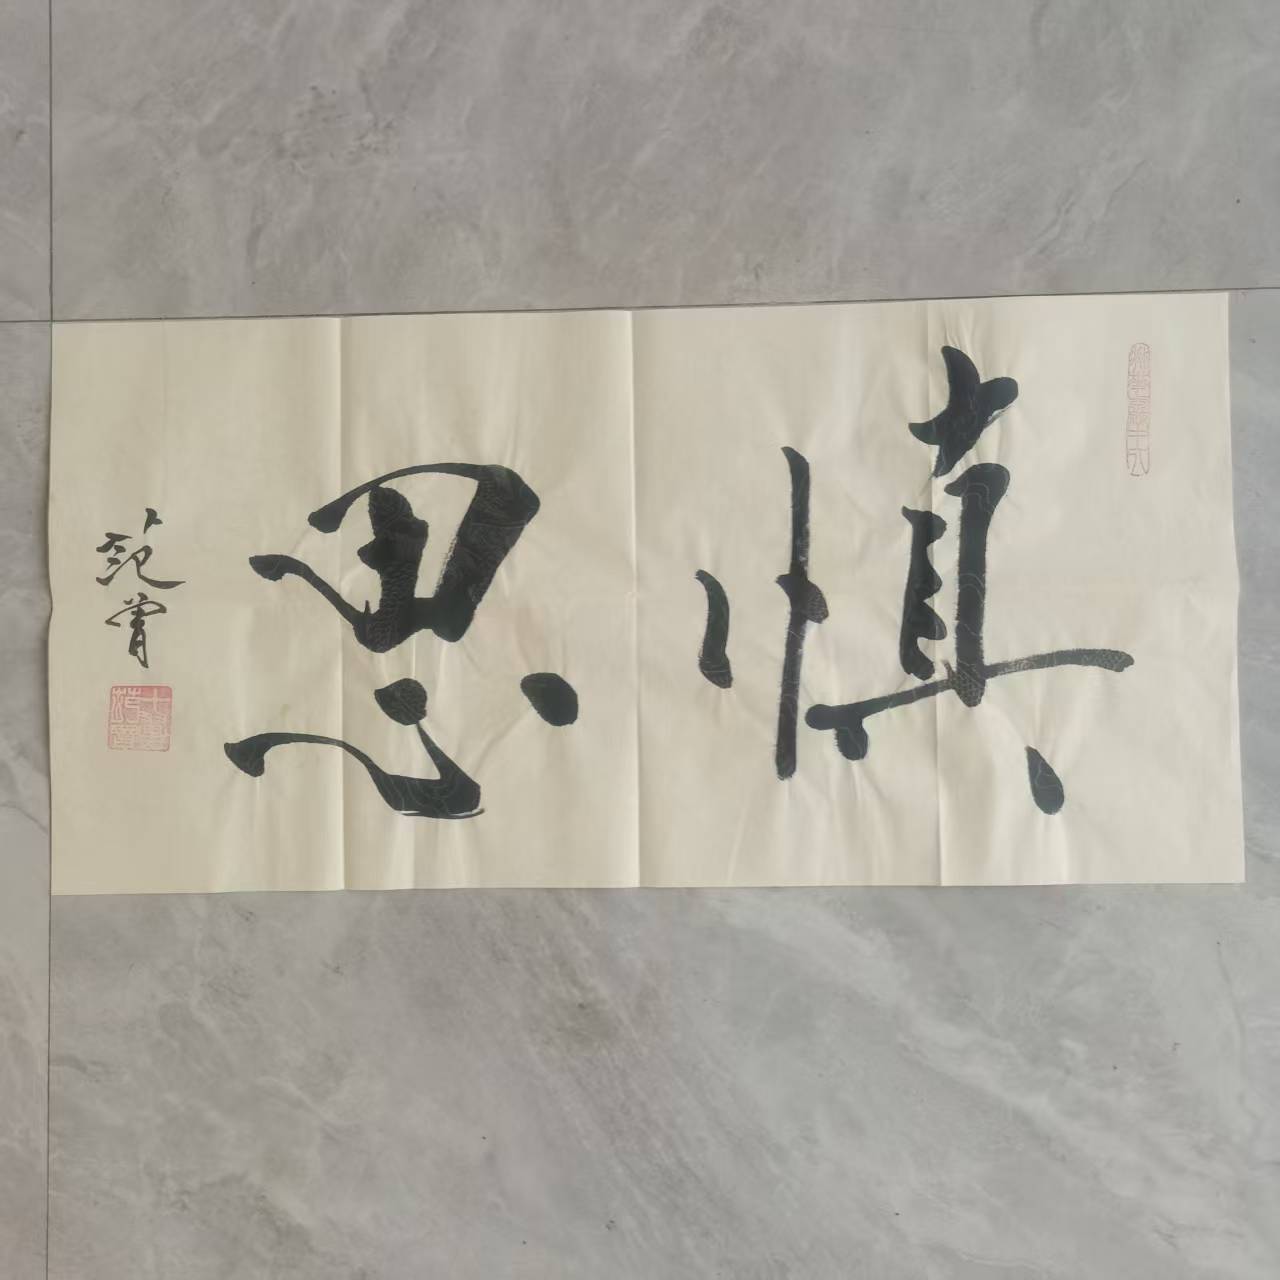 慎思
范曾